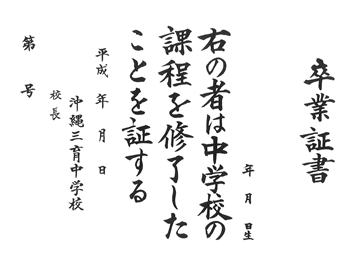 卒業証書
年 月 日生
右の者は中学校の
課程を修了した
ことを証する
平成 年 月 日
沖縄三育中学校
校長
第 号